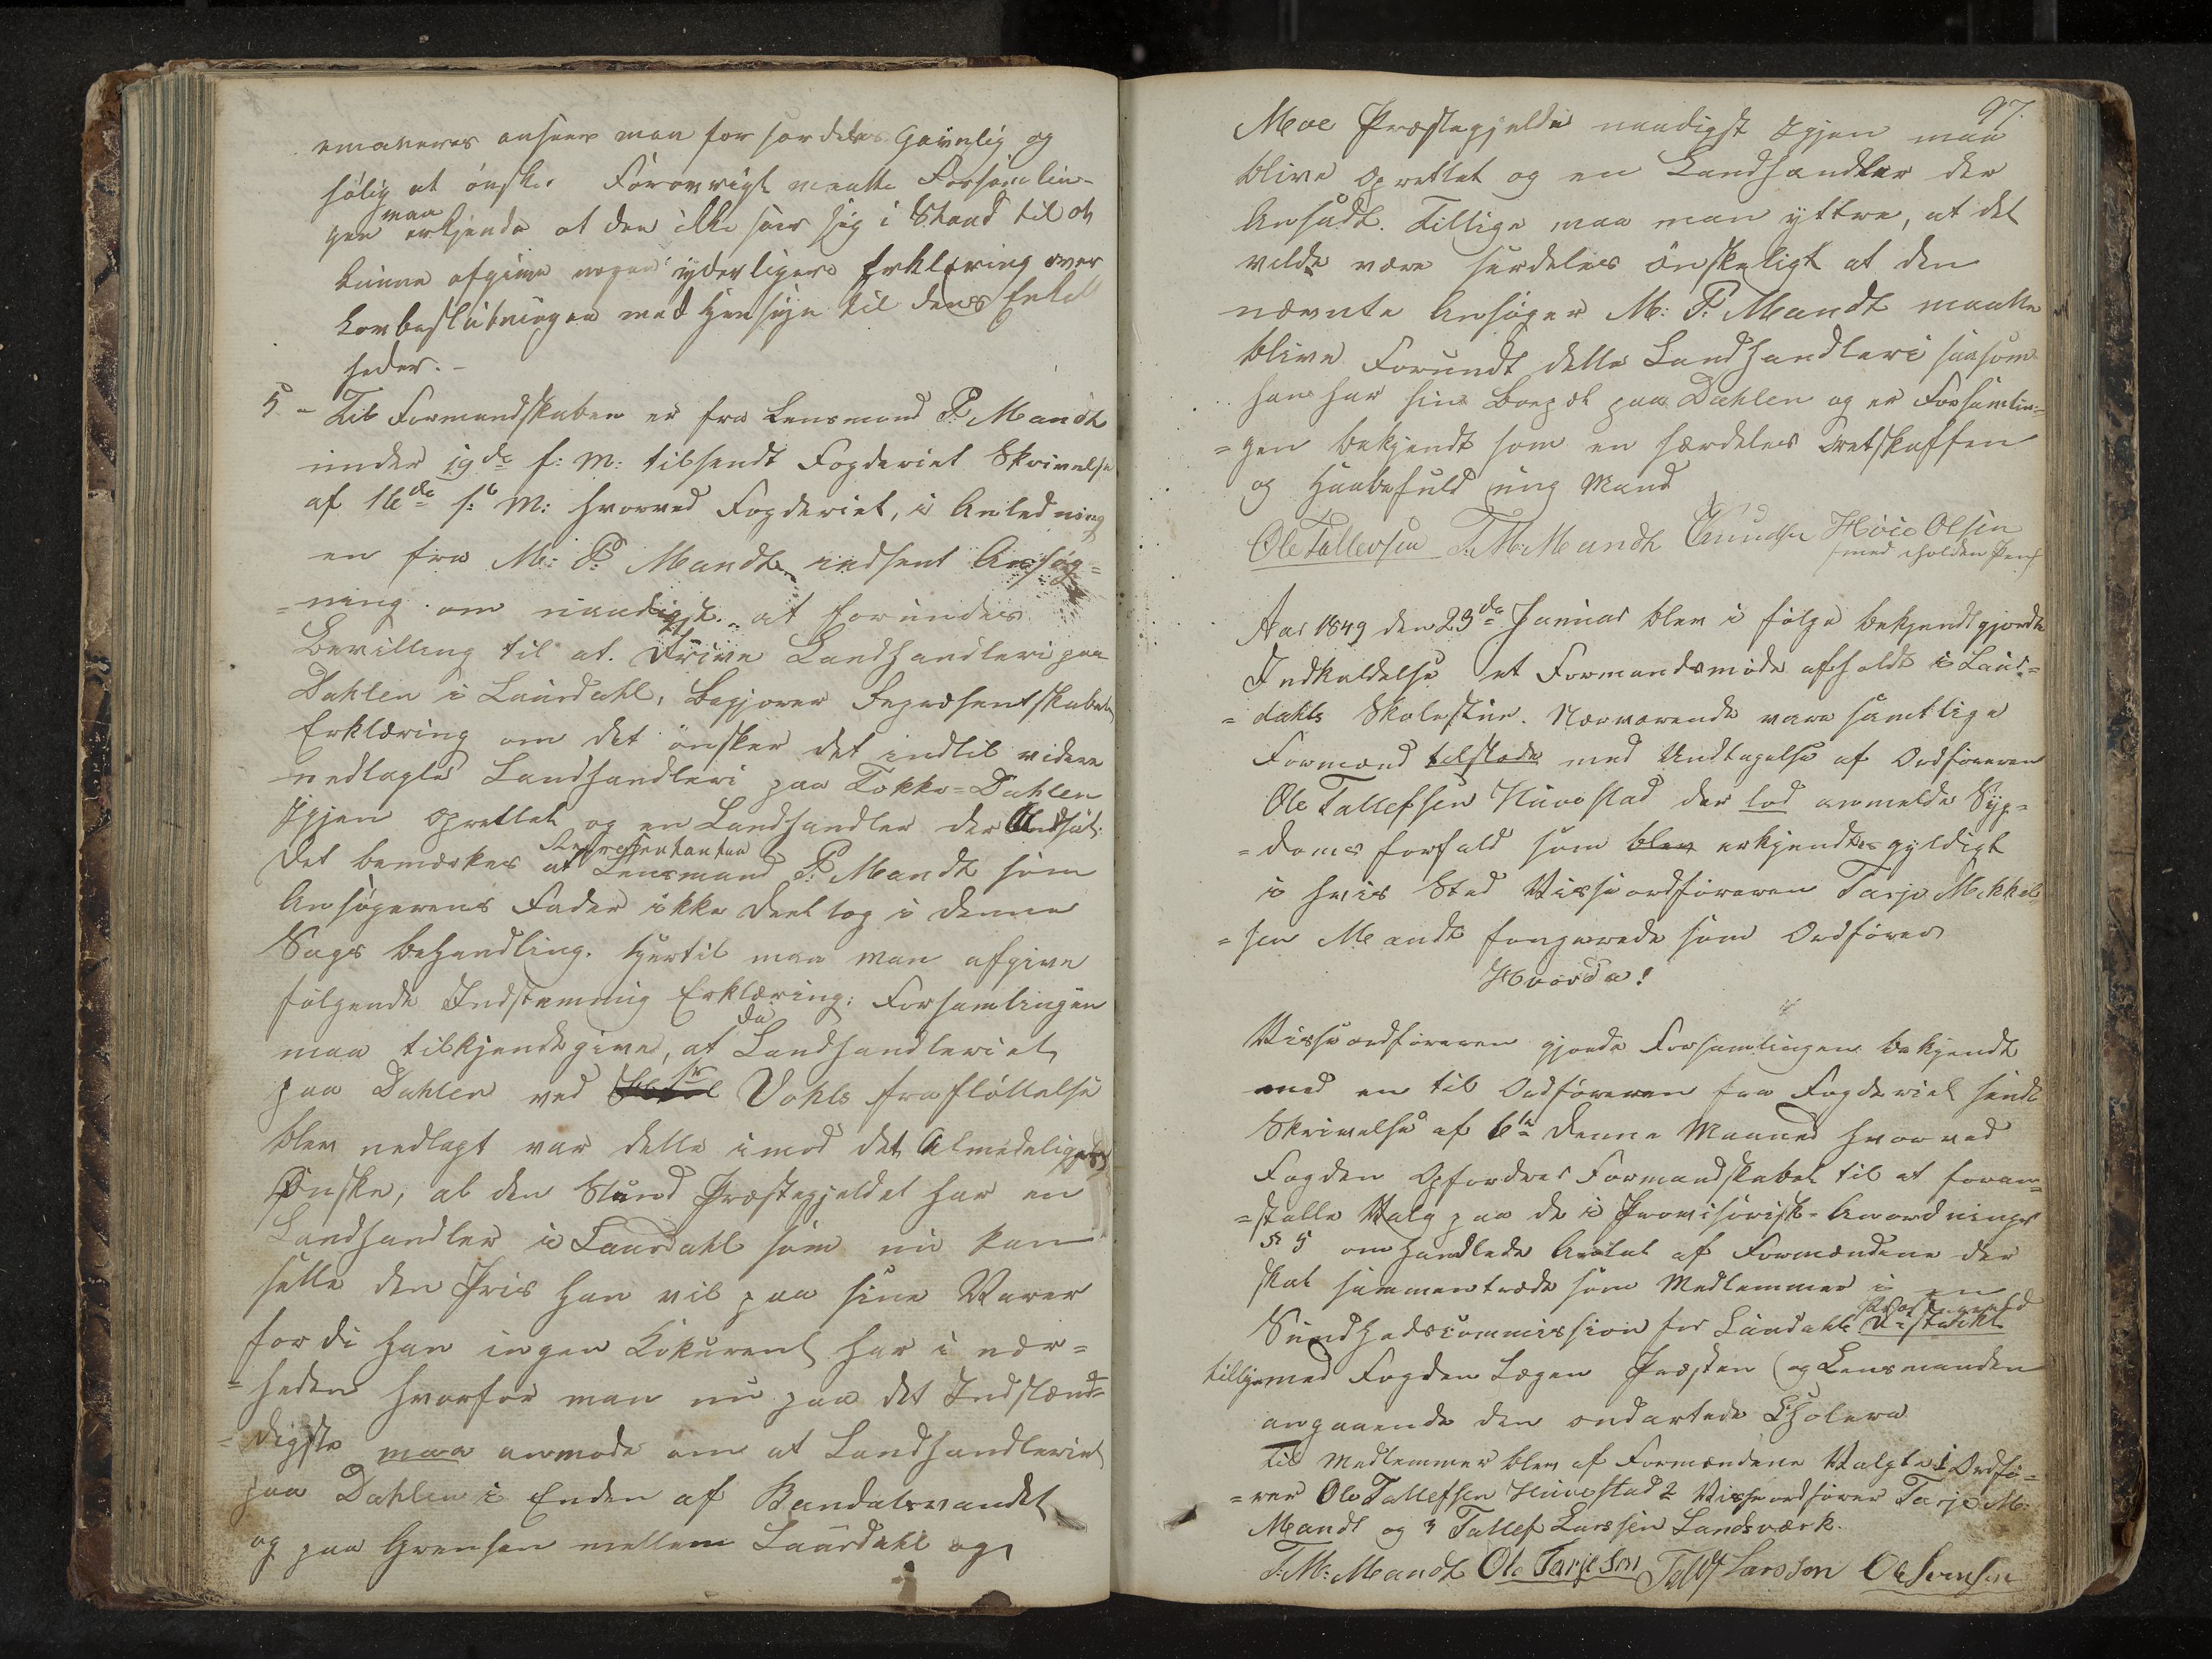 emaneres ansees man for særdeles Gavnlig og
følig at ønske. Forøvrigt maatte Forsamlin-
gen maa erkjende at den ikke seer sig i Stand til at
kunne afgive nogen yderligere Erklæring over
Lovbeslutningen med Hensyn til dens Enkelt
heder. -
5 - Til Formandskabet er fra Lensmand P. Mandt
under 19de f: M: tilsendt Fogderiets Skrivelse
af 16de s: M: hvorved Fogderiet, i Anledning
en fra M: P. Mandt indsent Ansøg=
=ning om naadigst at forundes
Bevilling til at Drive Landhandleri paa
Dahlen i Laurdahl, begjærer Repræsentskabets
Erklæring om det ønsker det indtil videre
nedlagte Landhandleri paa Tokke=Dahlen
Igjen oprettet og en Landhandler der Andsat.
Det bemærkes at Repræsentanten Lensmand P. Mandt som
Ansøgerens Fader ikke deeltog i denne
Sags behandling. Hertil maa man afgive
følgende Indstemmig Erklæring: Forsamlingen
maa tilkjendegive, at da Landhandleriet
paa Dahlen ved Hr Vohls fraflöttelse
blev nedlagt var dette imod det Almedeliges
Ønske, at den Stund Præstegjeldet har en
Landhandler i Laurdahl som nu kan
sette den Pris han vil paa sine Varer
fordi han ingen Kokurent har i nær=
=heden hvorfor man nu paa det Indstænd=
=digste maa anmode om at Landhandleriet
paa Dahlen i Enden af Bandaksvandet
og paa Grensen mellem Laurdahl og
97.
Moe Præstegjelde naadigst Igjen maa
blive oprettet og en Landhandler der
Ansadt. Tillige maa man yttre, at det
vilde være serdeles ønskeligt at den
nævnte Ansøger M: P. Mandt maatte
blive Forundt dette Landhandleri saasom
han har sin Boepæl paa Dahlen og er Forsamlin=
=gen bekjendt som en særdeles Retskaffen
og Haabefuld ung Mand
Ole Tallevsen T. M. Mandt Knudsen Høie Olsen
med iholden Pen
Aar 1849 den 23de Januar blev i følge bekjendtgjordte
Indkaldelse et Formandsmøde afholdt i Laur=
=dahls Skolestue. Nærværende vare samtlige
Formænd tilstede med Undtagelse af Ordføreren
Ole Tallefsen Huvestad der lod anmelde Syg=
=doms forfald som blev erkjendtes gyldigt
i hvis Sted Viseordføreren Tarje Mikkel
=sen Mandt fungerede som Ordfører
Hvorda!
Viseordføreren gjorde Forsamlingen bekjendt
med en til Ordføreren fra Fogderiet sendt
Skrivelse af 6te denne Maaned hvorved
Fogden Opfordrer Formandskabet til at foran=
=stalte Valg paa de i Provisorisk-Anordnings
§ 5 omhandlede Antal af Formændene der
skal sammentræde som Medlemmer i en
Sundhedscommission for Laurdahls Præstegjeld Distrikt
tilligemed Fogden Lægen Præsten og Lensmanden
angaaende den ondartede Cholera
Til Medlemmer blev af Formændene Valgte 1 Ordfø=
=rer Ole Tallefsen Huvestad 2 Viseordfører Tarje M:
Mandt og 3 Tallef Larssen Landsværk.
T. M: Mandt Ole Tarjeson Tallef Larsson Ole Svensen